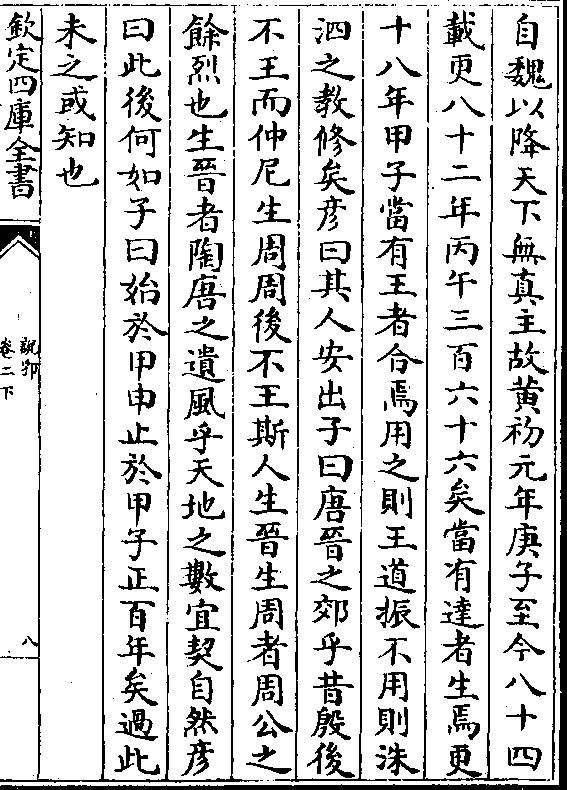 自魏以降天下無真主故黄初元年庚子至今八十四
載更八十二年丙午三百六十六矣當有達者生焉更
十八年甲子當有王者合焉用之則王道振不用則洙
泗之教修矣彦曰其人安出子曰唐晉之郊乎昔殷後
不王而仲尼生周周後不王斯人生晉生周者周公之
餘烈也生晉者陶唐之遺風乎天地之數宜契自然彦
曰此後何如子曰始於甲申止於甲子正百年矣過此
未之或知也
欽定四庫全書
說郛
卷二下
八